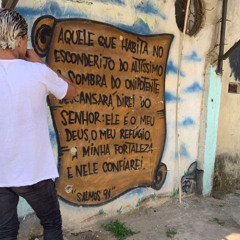 AQUELE QUE HABITA NO
ESCONDERIJO DO ALTÍSSIMO
A SOMBRA DO ONIPOTENTE
DESCANSARÁ, DIREI DO
SENHOR: ELE É O MEU
DEUS, O MEU REFÚGIO,
A MINHA FORTALEZA
E NELE CONFIAREI.
SALMOS 91